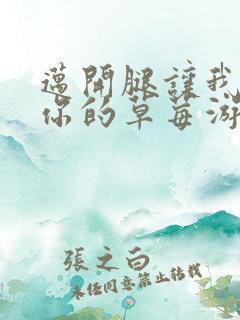 邁開腿讓我
你的草莓
張之白
未經同意禁止轉載